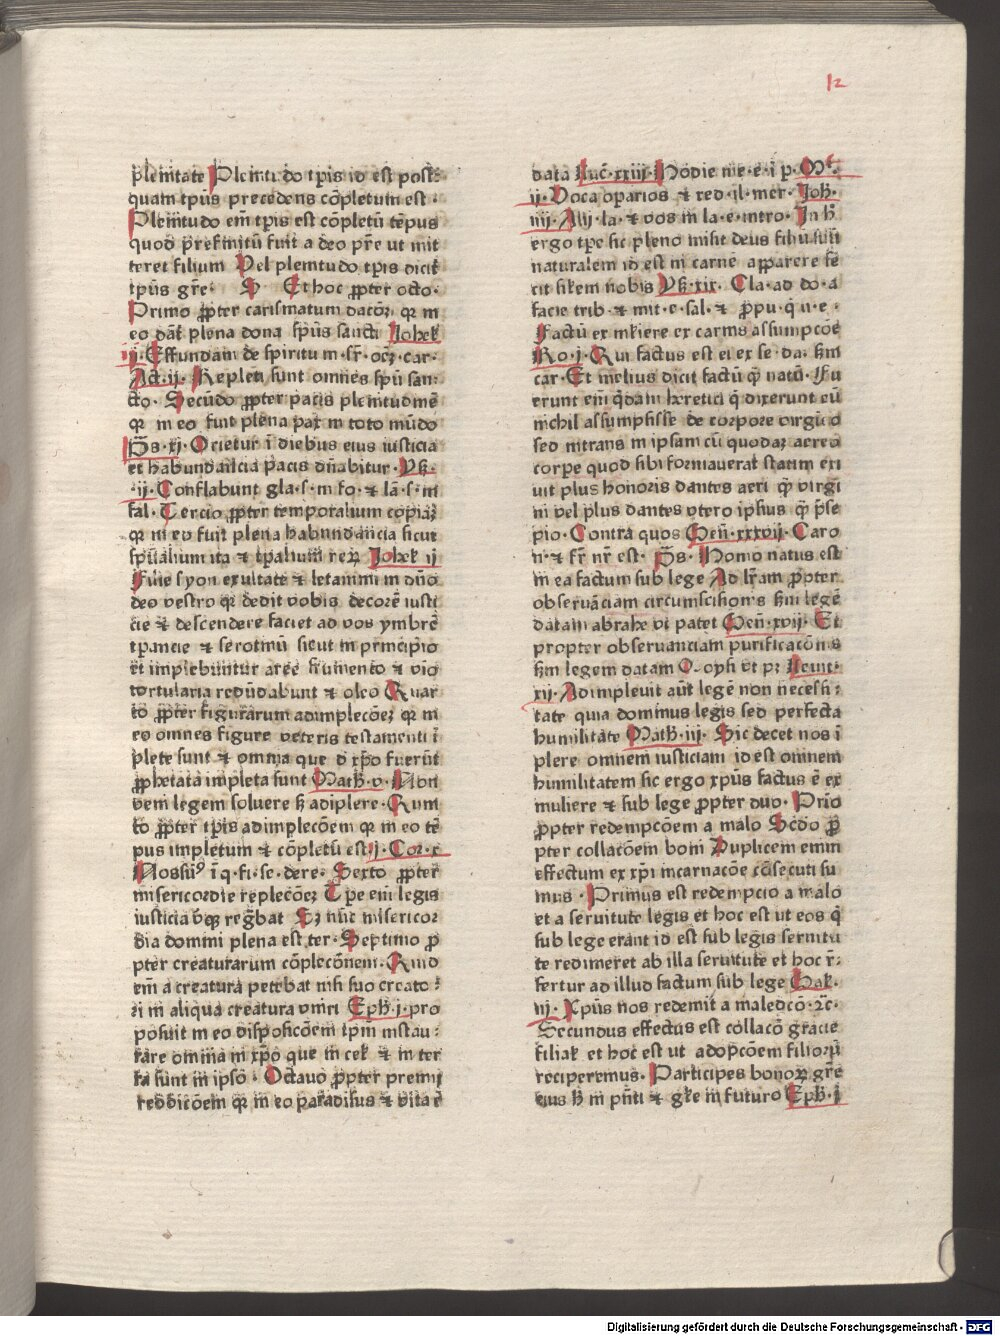 12
plenitate Plenitudo tp̄is id est post⸗
quam tp̄us precedens cōpletum est ·
Plenitudo em̄ tp̄is est cōpletū tēpus
quod prefinitū fuit a deo pr̄e ut mit
teret filium Vel plenitudo tp̄is dicit̄
tp̄us gr̄e· S· Et hoc ꝓpter octo·
Primo ꝓpter carismatum dacōꝫ qꝛ in
eo dāt̄ plena dona spūs sancti Johel̄
ij· Effundam de spiritu m·sr̄·oēꝫ car·
Act·ij· Repleti sunt omnes spū san⸗
cto· Secūdo ꝓpter pacis plenitudinē
qꝛ in eo fuit plena pax in toto mūdo
p̄s·xj· Orietur ī diebus eius iusticia
et habundancia pacis dn̄abitur· Ys̄·
·ij· Conflabunt gla·s·in fo·⁊ lā·s·in
fal· Tercio ꝓpter temporalium copiāꝫ
qꝛ in eo fuit plena habundancia sicut
sp̄ualium ita ⁊ tp̄alium reꝝ Johel ij
Filie syon exultate ⁊ letamini in dn̄o
deo vestro qꝛ dedit vobis decorē iusti
cie ⁊ descendere faciet ad vos ymbrē
tp̄aneie ⁊ serotinū sicut in principio
et implebuntur aree frumento ⁊ vīo
tortularia redūdabunt ⁊ oleo Quar
to ꝓpter figurarum adimplecōeꝫ qꝛ in
eo omnes figure veteris testamenti ī
plete sunt ⁊ omnia que d xp̄o fuerūt
ꝓphetata impleta sunt Math·v· Non
veni legem soluere sꝫ adiplere· Quin
to ꝓpter tp̄is adimplecōem qꝛ in eo tē
pus impletum ⁊ cōpletū est ij·Cor·x
Nos sūꝰ ī q·fi·se·dere· Sexto ꝓpter
misericordie replecōeꝫ Tp̄e eni legis
iusticia vbꝫ regn̄bat Sꝫ nūc misericor
dia domini plena est ter· Septimo ꝓ
pter creaturarum cōplecōnem· Quid
em̄ a creatura petebat nisi suo creato⸗
ri in aliqua creatura vniri Eph·j· pro
posuit in eo disposicōem tp̄m instau⸗
rare omnia in xp̄o que in cel̄ ⁊ in ter
ra sunt in ipso· Octauo ꝓpter premij
reddicōem qꝛ in eo paradisus ⁊ vita ē
data Luc̄·xxiij· Hodie me·e·i p· Mt̄·
ij· Voca oparios ⁊ red·il·mer· Joh̄·
iiij· Alij la·⁊ vos in la·e·intro· In h̄
ergo tp̄e sic pleno misit deus filiū suū
naturalem id est in carne apparere fe
cit sil̄em nobis Ys̄·xix· Cla·ad do·a
facie trib·⁊ mit·e·sal·⁊ ꝓpu·q·li·e·
Factū ex mliere ex carnis assumpcōe
Ro·j· Qui factus est ei ex se·da·sm̄
car· Et melius dicit factū qꝫ natū· Fu
erunt em̄ qdam heretici q̄ dixerunt eū
nichil assumpsisse de corpore virginis
sed intrans in ipsam cū quodaꝫ aereo
corpe quod sibi formauerat statim exi
uit plus honoris dantes aeri qꝫ virgi
ni vel plus dantes vtero ipsius qꝫ p̄se
pio· Contra quos Gen̄·xxxvij· Caro
n̄·⁊ fr̄ nr̄ est· p̄s· Homo natus est
in ea factum sub lege Ad lr̄am ꝓpter
obseruāciam circumscisionis sm̄ legē
datam abrahe vt patet Gen̄·xvij· Et
propter obseruanciam purificacōnis
sm̄ legem datam Moysi vt pꝫ Leuit·
xij· Adimpleuit aūt legē non necessi⸗
tate quia dominus legis sed perfecta
humilitate Math̄·iij· Sic decet nos ī
plere omnem iusticiam id est omnem
humilitatem sic ergo xp̄us factus ē ex
muliere ⁊ sub lege ꝓpter duo· Prīo
ꝓpter redempcōem a malo Scd̄o ꝓ
pter collacōem boni Duplicem enim
effectum ex xp̄i incarnacōe cōsecuti su
mus· Primus est redempcio a malo
et a seruitute legis et hoc est ut eos q̄
sub lege erant id est sub legis seruitu
te redimeret ab illa seruitute et hoc r̄⸗
fertur ad illud factum sub lege Gal̄·
iij· Xp̄us nos redemit a maledcō·⁊c̄·
Secundus effectus est collacō gracie
filial̄ et hoc est ut adopcōem filiorū
reciperemus· Participes bonoꝝ gr̄e
eius h̄ in pn̄ti ⁊ gl̄e in futuro Eph̄·j
Digitalisierung gefördert durch die Deutsche Forschungsgemeinschaft · DFG